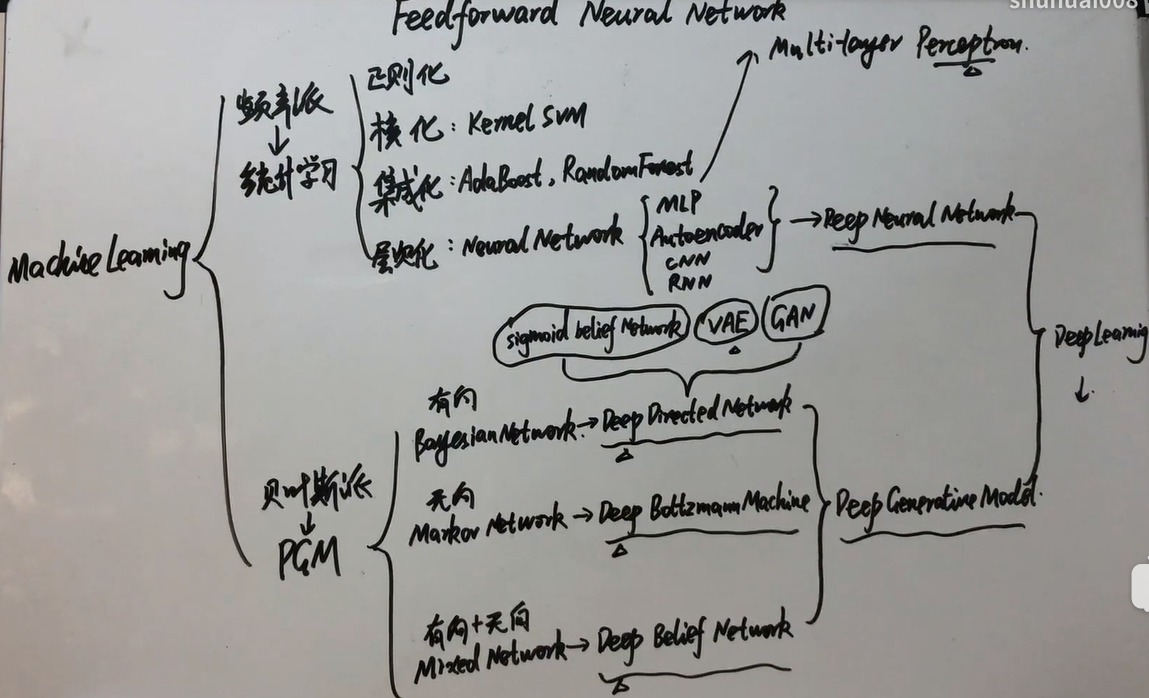 shuhuai008
Feedforward Neural Network
Multi-layer Perceptron.
频率派
统计学习
正则化
核化：Kernel SVM
集成化：AdaBoost, RandomForest
层次化：Neural Network
MLP
Autoencoder
CNN
RNN
Deep Neural Network
Machine Learning
sigmoid belief Network
VAE
GAN
Deep Learning
贝叶斯派
PGM
有向
Bayesian Network
Deep Directed Network
无向
Markov Network
Deep Boltzmann Machine
Deep Generative Model.
有向+无向
Mixed Network
Deep Belief Network